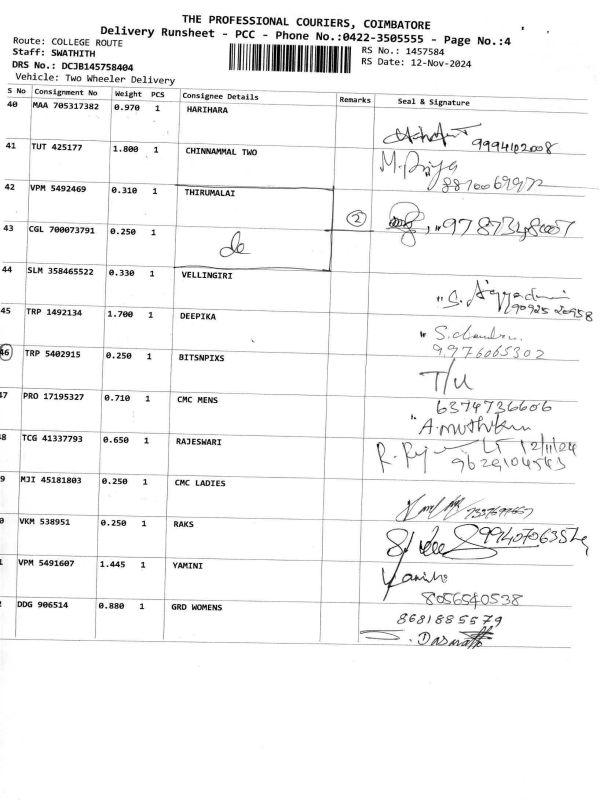 THE PROFESSIONAL COURIERS, COIMBATORE
Delivery Runsheet - PCC - Phone No.:0422-3505555 - Page No.:4
Route: COLLEGE ROUTE
Staff: SWATHITH
RS No.: 1457584
DRS No.: DCJB145758404
RS Date: 12-Nov-2024
Vehicle: Two Wheeler Delivery
S No Consignment No Weight PCS Consignee Details Remarks Seal & Signature
40 MAA 705317382 0.970 1 HARIHARA
9994102008
41 TUT 425177 1.800 1 CHINNAMMAL TWO M. Priya
8870069972
42 VPM 5492469 0.310 1 THIRUMALAI
2
43 CGL 700073791 0.250 1
44 SLM 358465522 0.330 1 VELLINGIRI
90925 20958
45 TRP 1492134 1.700 1 DEEPIKA
9976065302
46 TRP 5402915 0.250 1 BITSNPIXS
T/U
7 PRO 17195327 0.710 1 CMC MENS 6374736606
8 TCG 41337793 0.650 1 RAJESWARI 12/11/24
9 MJI 45181803 0.250 1 CMC LADIES
0 VKM 538951 0.250 1 RAKS
1 VPM 5491607 1.445 1 YAMINI
8056540538
DDG 906514 0.880 1 GRD WOMENS 8681885579